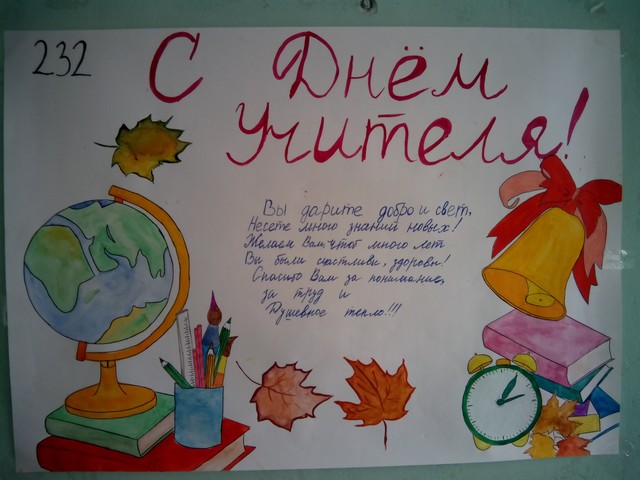 232
С Днём
Учителя!
Вы дарите добро и свет,
Несете много знаний новых!
Желаем Вам: чтоб много лет
Вы были счастливы, здоровы!
Спасибо Вам за понимание,
за труд и
Душевное тепло!!!